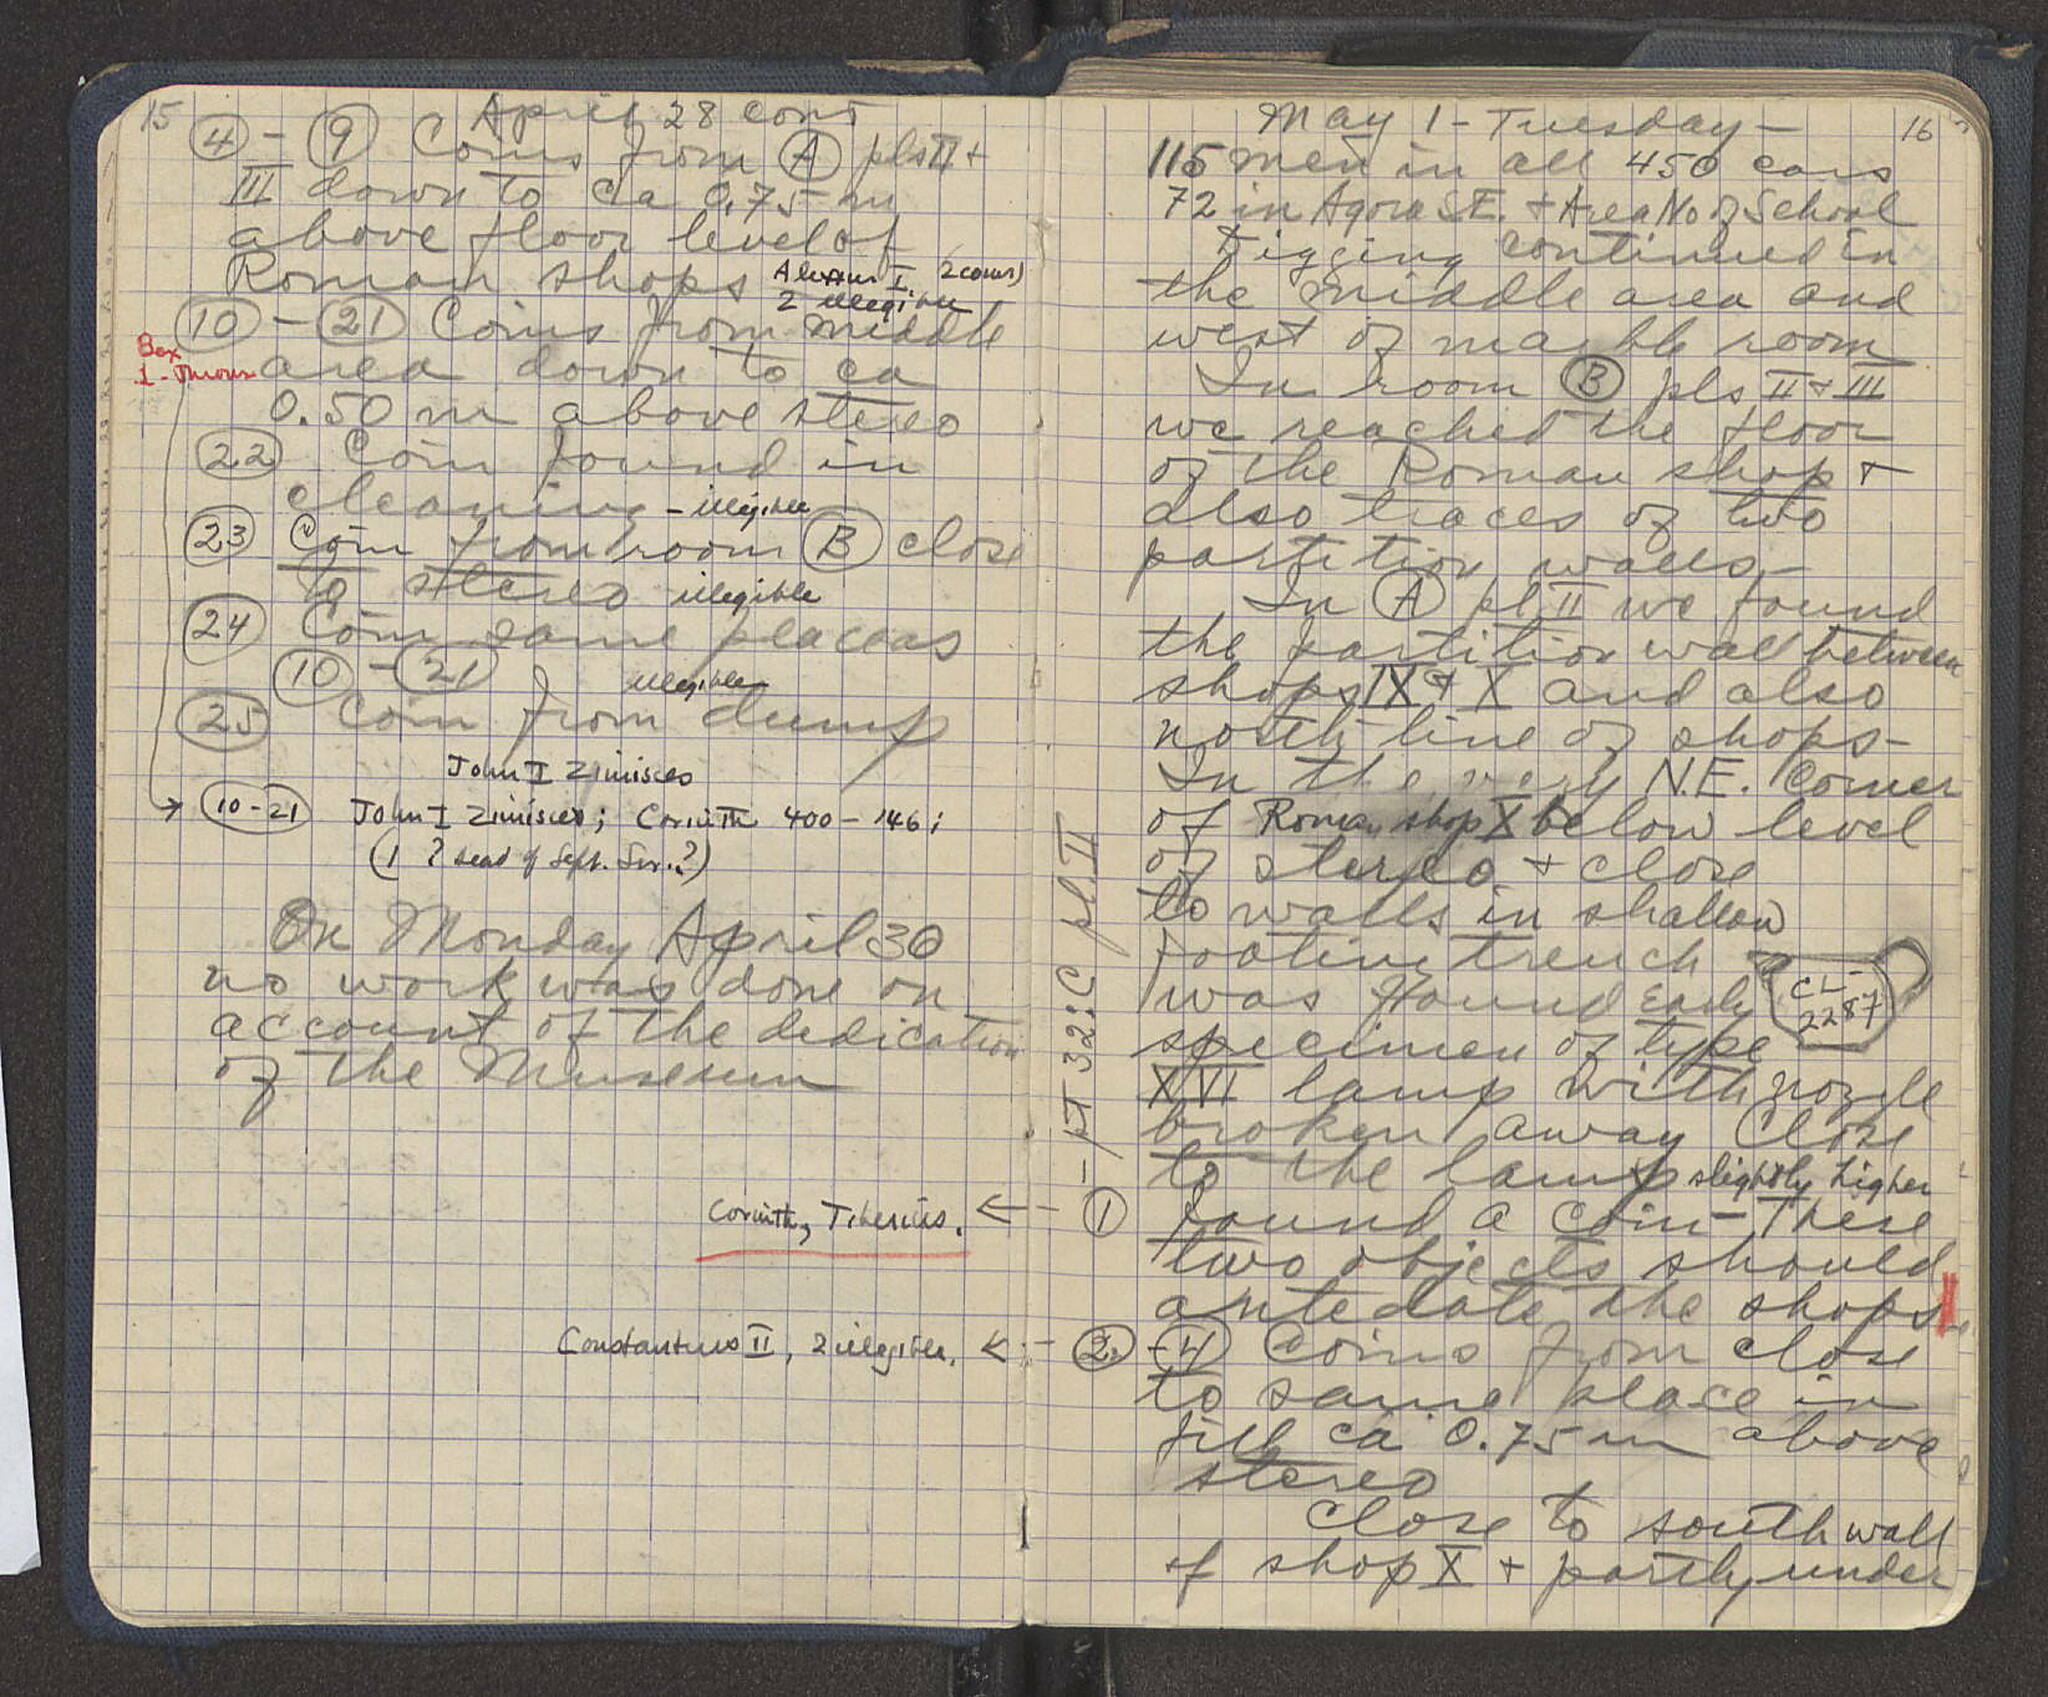 15
April 28 cont
4 - 9 Coins from A pls II +
III down to ca 0.75 m
above floor level of
Roman shops Alexius I, 2 coins)
2 illegible
10 - 21 Coins from middle
Box
1 - Throw
area down to ca
0.50 m above stereo
22 Coin found in
cleaning - illegible
23 Coin from room B close
to stereo illegible
24 Coin same place as
10 - 21 illegible
25 Coin from dump
John I Zimisces
→ 10-21 John I Zimisces; Corinth 400-146;
(1 ? head of Sept. Sev.?)
On Monday April 30
no work was done on
account of the dedication
of the Museum
Corinth, Tiberius. ←
Constantius II, 2 illegible. ←
May 1 - Tuesday - 16
115 men in all 450 cars
72 in Agora S.E. + Area No of School
Digging continued in
the middle area and
west of marble room
In room B pls II + III
we reached the floor
of the Roman shop +
also traces of two
partition walls -
In A pl II we found
the partition wall between
shops IX + X and also
north line of shops -
In the very N.E. corner
of Roman shop X below level
of stereo + close
to walls in shallow
footing trench
was found early
CL-
2287
specimen of type
XVI lamp with nozzle
broken away Close
to the lamp slightly higher
- pt 32:C pl. II
1 found a coin - These
two objects should
antedate the shops -
2 - 4 Coins from close
to same place in
fill ca 0.75 m above
stereo
Close to south wall
of shop X + partly under